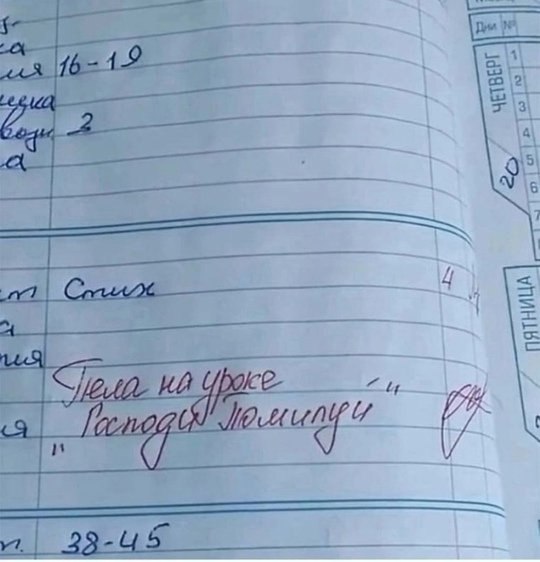 ка
ия 16-19
едка
вози 3
а
т Стих 4
а
ния
Пела на уроке
ия "Господи Помилуй"
п. 38-45
Дни №
ЧЕТВЕРГ
20
1
2
3
4
5
6
7
ПЯТНИЦА